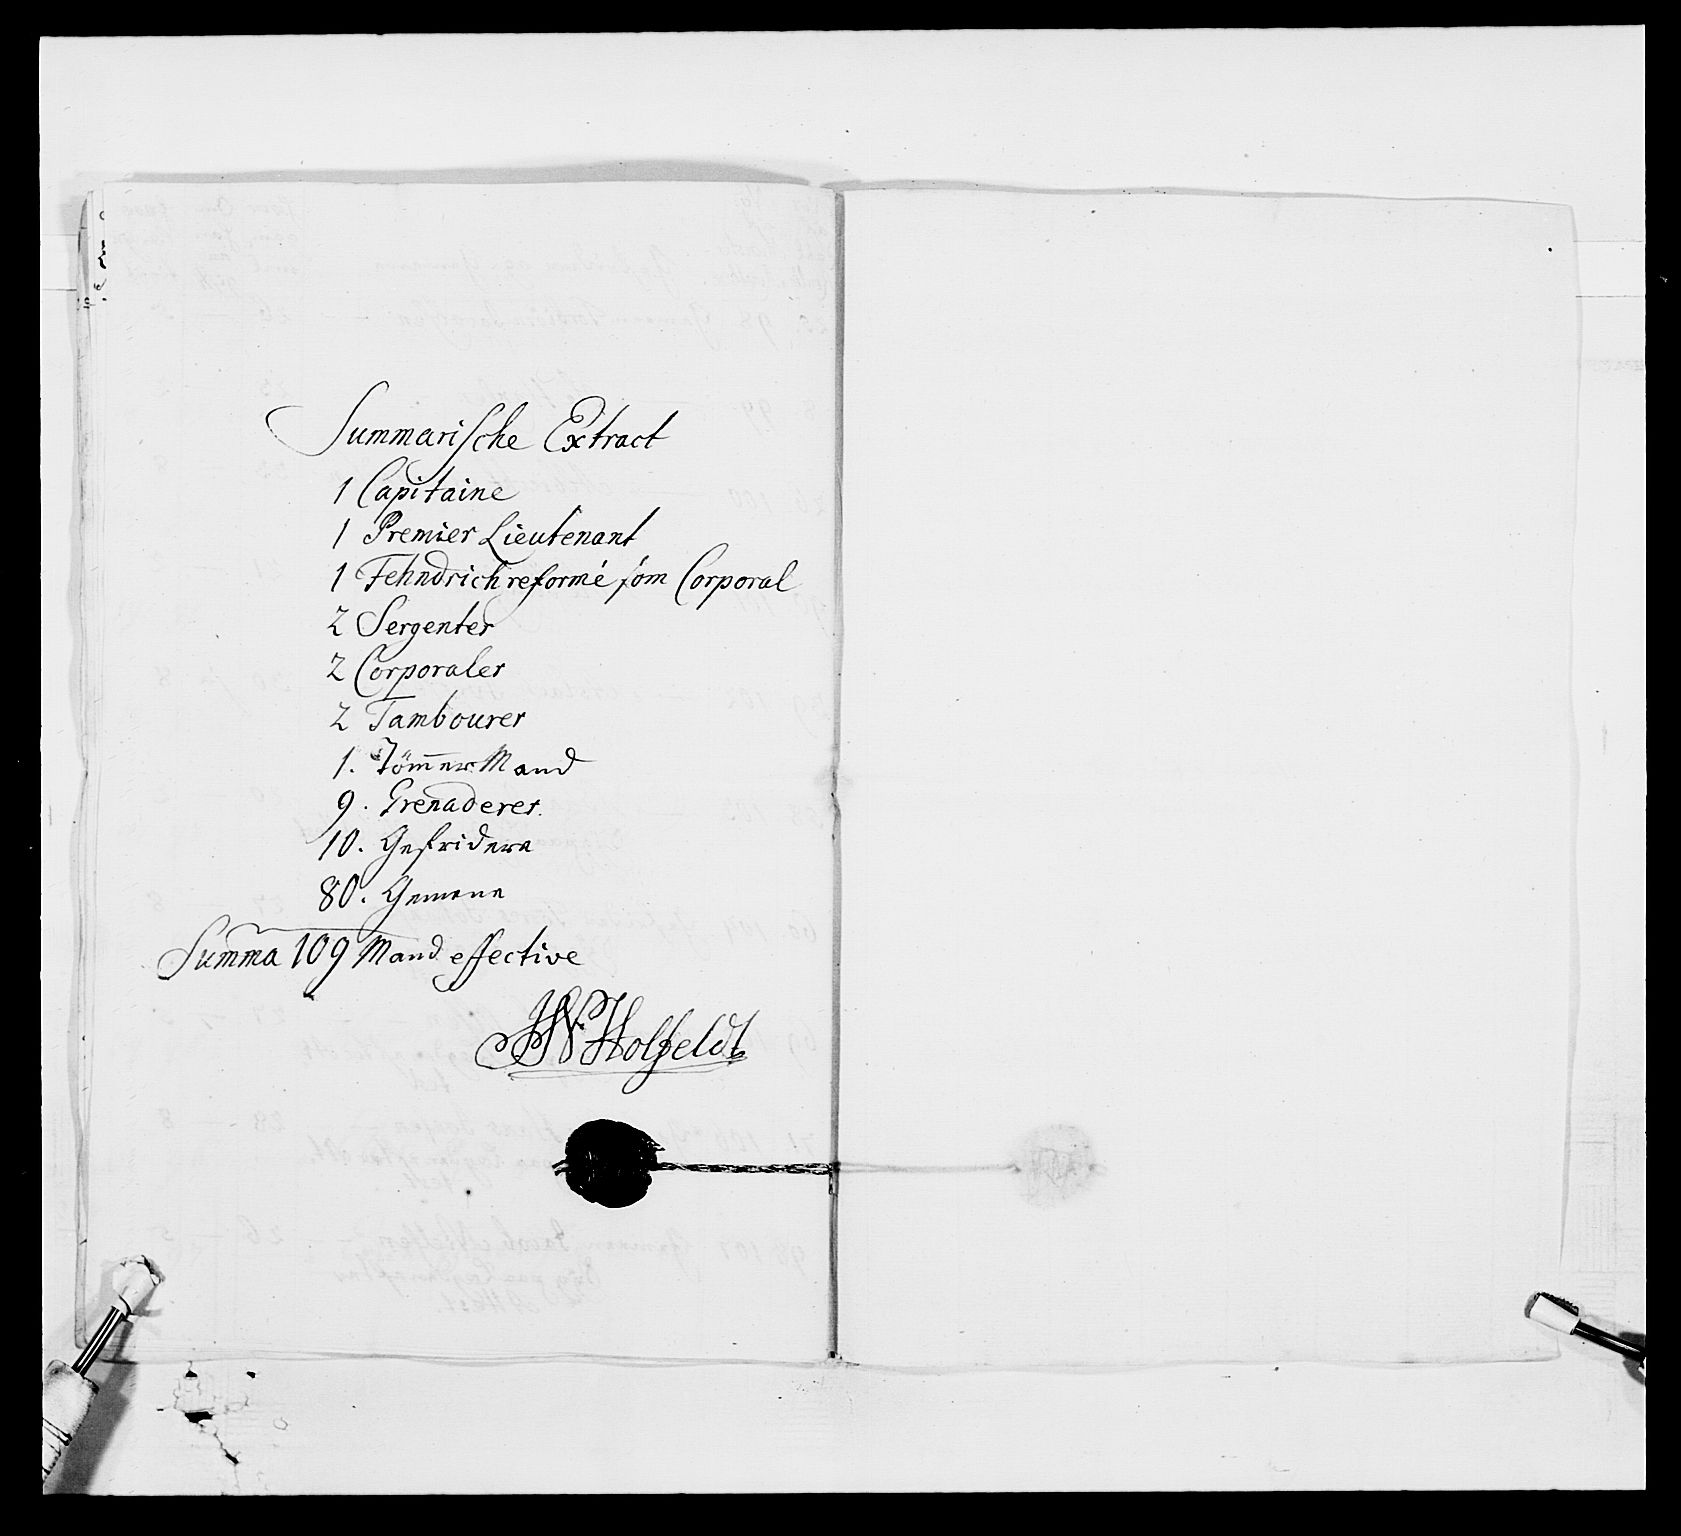 Summarische Extract
1 Capitaine
1 Premier Lieutenant
1 Fehndrich reformé som Corporal
2 Sergenter
2 Corporaler
2 Tambourer
1. Tömer Mand
9. Grenaderer.
10. Gefridere
80. Gemene
Summa 109 Mand effective
Holfeldt